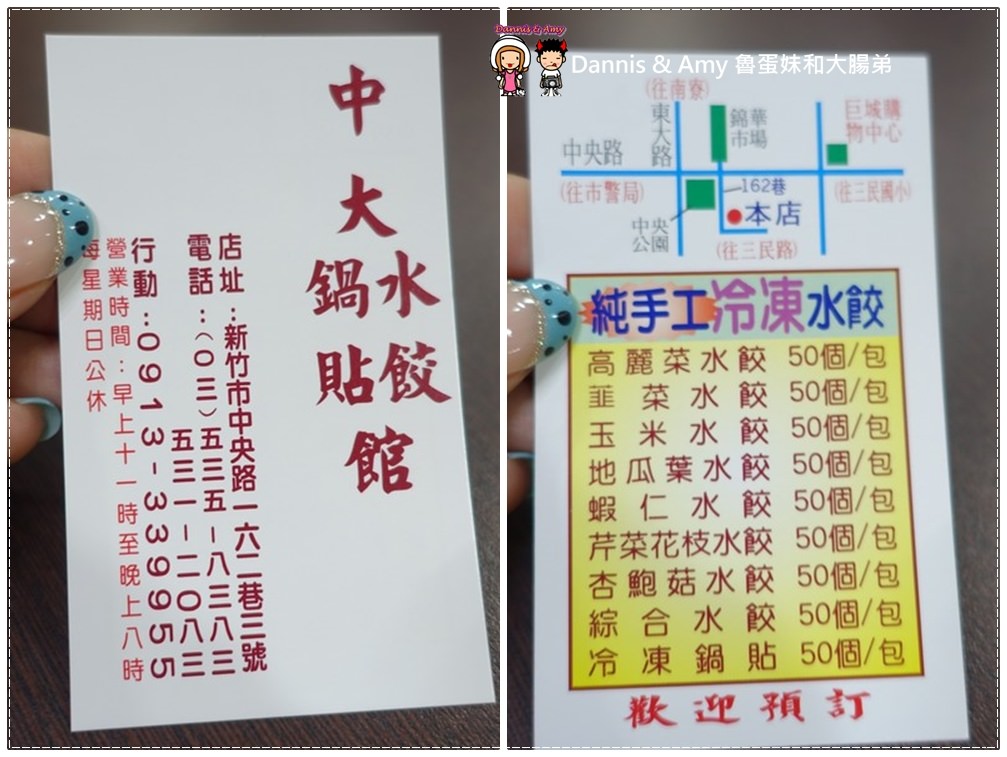 中大水餃鍋貼館
店址:新竹市中央路一六二巷三號
電話:(〇三)五三五-八三八三
五三一-二〇八三
行動:0913-339955
營業時間:早上十一時至晚上八時
每星期日公休
Dannis & Amy
Dannis & Amy 魯蛋妹和大腸弟
(往南寮)
東大路
錦華市場
巨城購物中心
中央路
(往市警局)
162巷
(往三民國小)
本店
中央公園
(往三民路)
純手工冷凍水餃
高麗菜水餃 50個/包
韮菜水餃 50個/包
玉米水餃 50個/包
地瓜葉水餃 50個/包
蝦仁水餃 50個/包
芹菜花枝水餃 50個/包
杏鮑菇水餃 50個/包
綜合水餃 50個/包
冷凍鍋貼 50個/包
歡迎預訂